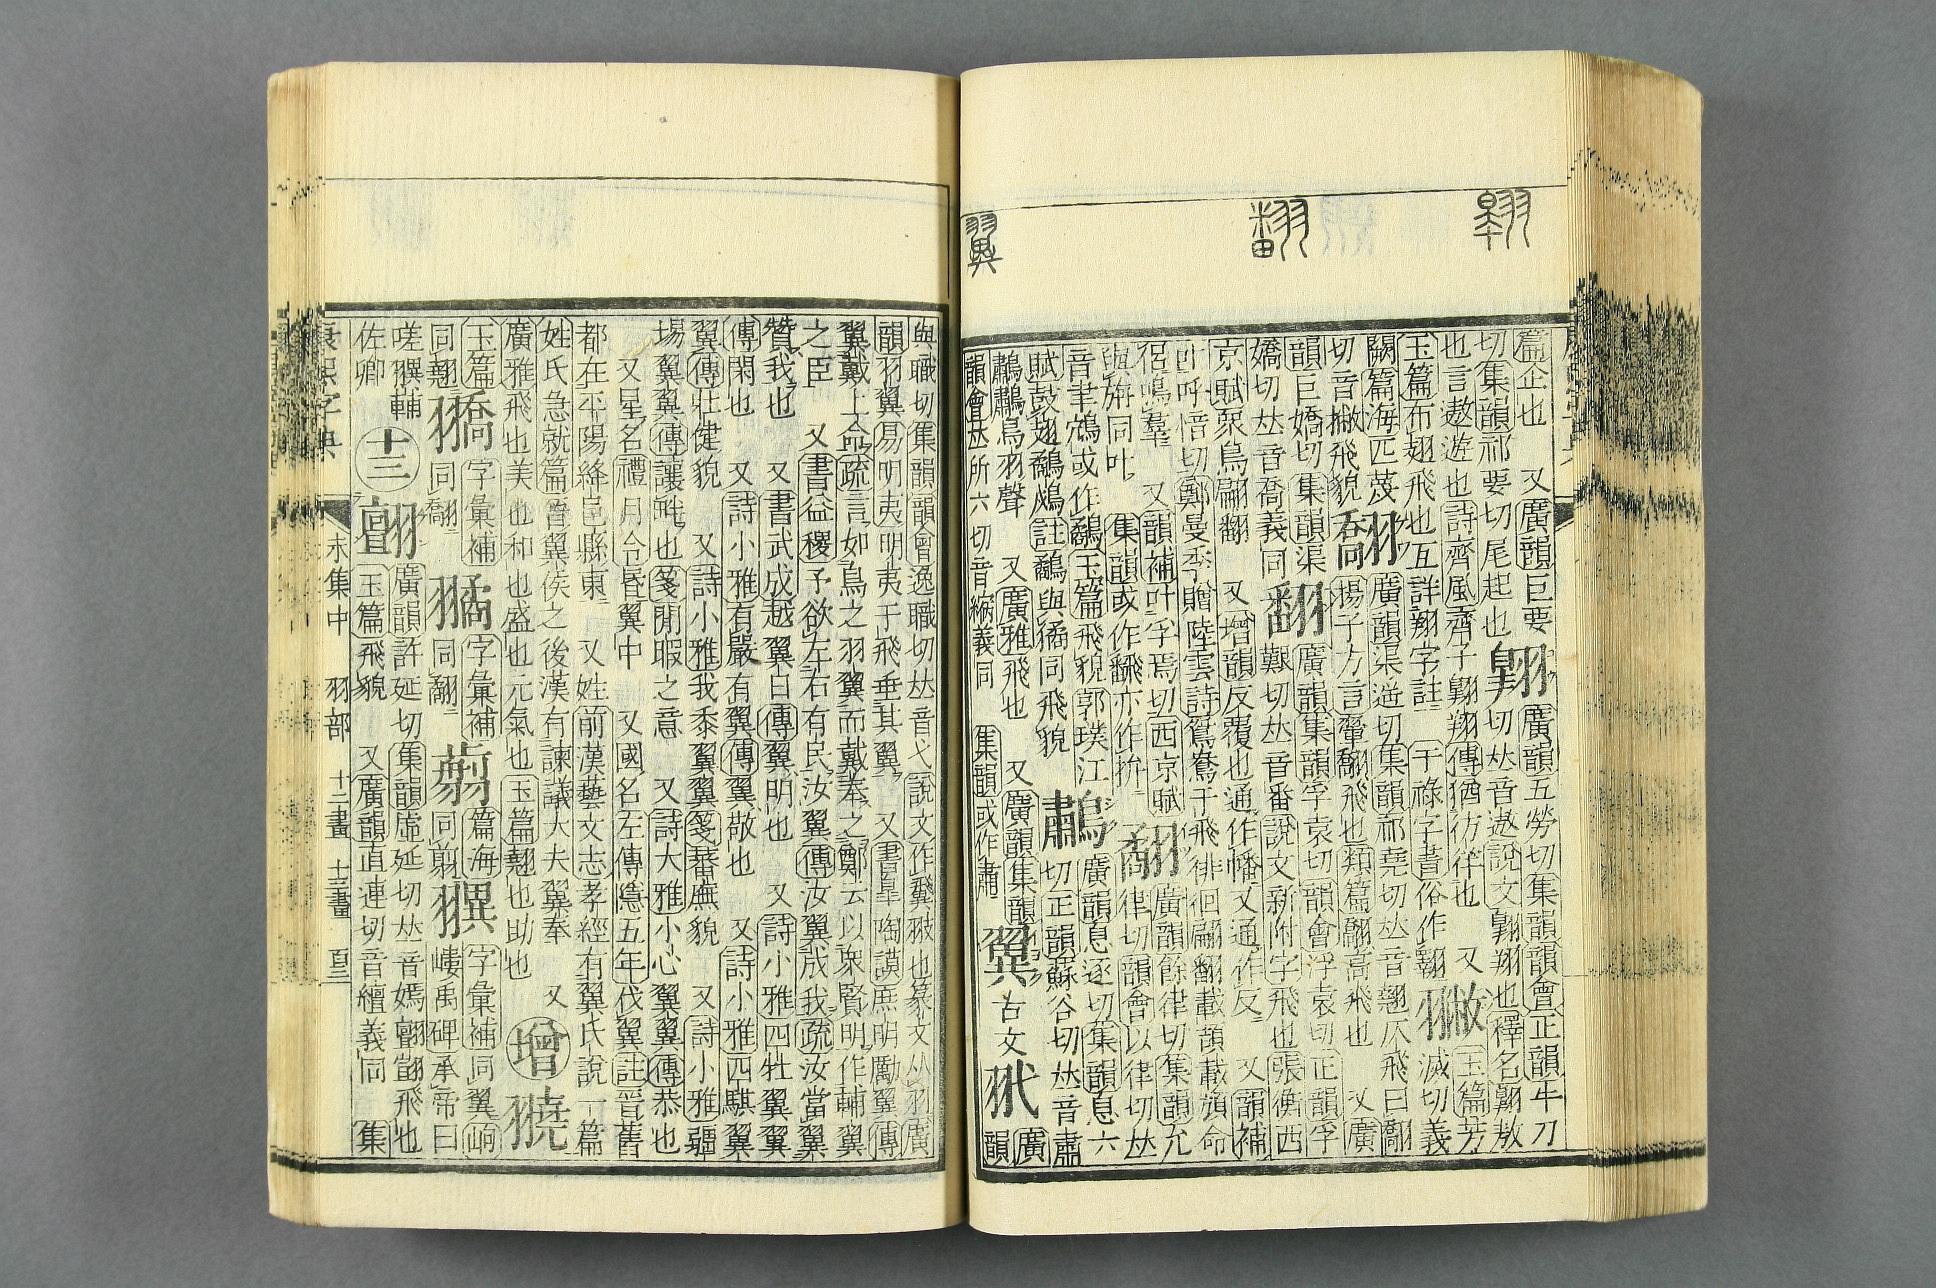 翱
翻
翼
篇企也　又廣韻巨要
切集韻祁要切尾起也
翺
廣韻五勞切集韻韻會正韻牛刀
切𠀤音遨說文翺翔也釋名翺敖
也言遨遊也詩齊風齊子翺翔傳猶彷徉也　又
玉篇布翅飛也互詳翔字註　干祿字書俗作翱
玉篇芳
滅切義
闕篇海匹蔑
切音撇飛貌
翗
廣韻渠遙切集韻祁堯切𠀤音翹仄飛曰翗
揚子方言翬翻飛也類篇翗高飛也　又廣
韻巨嬌切集韻渠
嬌切𠀤音喬義同
翻
廣韻集韻孚袁切韻會浮袁切正韻孚
艱切𠀤音番說文新附字飛也張衡西
京賦衆鳥翩翻　又增韻反覆也通作幡又通作反　又韻補
叶呼愔切鄭曼季贈陸雲詩鴛鴦于飛徘徊翩翻載頡載頏命
侶鳴羣　又韻補叶孚焉切西京賦
與旃同叶　集韻或作飜亦作拚
廣韻餘律切集韻允
律切韻會以律切𠀤
音聿鴥或作玉篇飛貌郭璞江
賦鼓翅註與矞同飛貌
廣韻息逐切集韻息六
切正韻蘇谷切𠀤音肅
鳥羽聲　又廣雅飛也　又廣韻集韻
韻會𠀤所六切音縮義同　集韻或作
翼
古文
廣
韻
與職切集韻韻會逸職切𠀤音弋說文作䬄翄也篆文从羽廣
韻羽翼易明夷明夷于飛垂其翼　又書皐陶謨庶明勵翼傳
翼戴上命疏言如鳥之羽翼而戴奉之鄭云以衆賢明作輔翼
之臣　又書益稷予欲左右有民汝翼傳汝翼成我疏汝當翼
贊我也　又書武成越翼日傳翼明也　又詩小雅四牡翼翼
傳閑也　又詩小雅有嚴有翼傳翼敬也　又詩小雅四騏翼
翼傳壯健貌　又詩小雅我黍翼翼箋蕃廡貌　又詩小雅疆
場翼翼傳讓畔也箋閒暇之意　又詩大雅小心翼翼傳恭也
又星名禮月令昏翼中　又國名左傳隱五年伐翼註晉舊
都在平陽絳邑縣東　又姓前漢藝文志孝經有翼氏說一篇
姓氏急就篇晉翼侯之後漢有諫議大夫翼奉　又
廣雅飛也美也和也盛也元氣也玉篇翹也助也
增
䎗
玉篇
同翹
字彙補
同翻
字彙補
同翻
篇海
同翦
字彙補同翼峋
嶁禹碑承帝曰
嗟輔
佐卿
十三
翾
廣韻許延切集韻虛延切𠀤音嫣翾翾飛也
玉篇飛貌　又廣韻直連切音纏義同　集
康熙字典
未集中　羽部　十二畫　十三畫